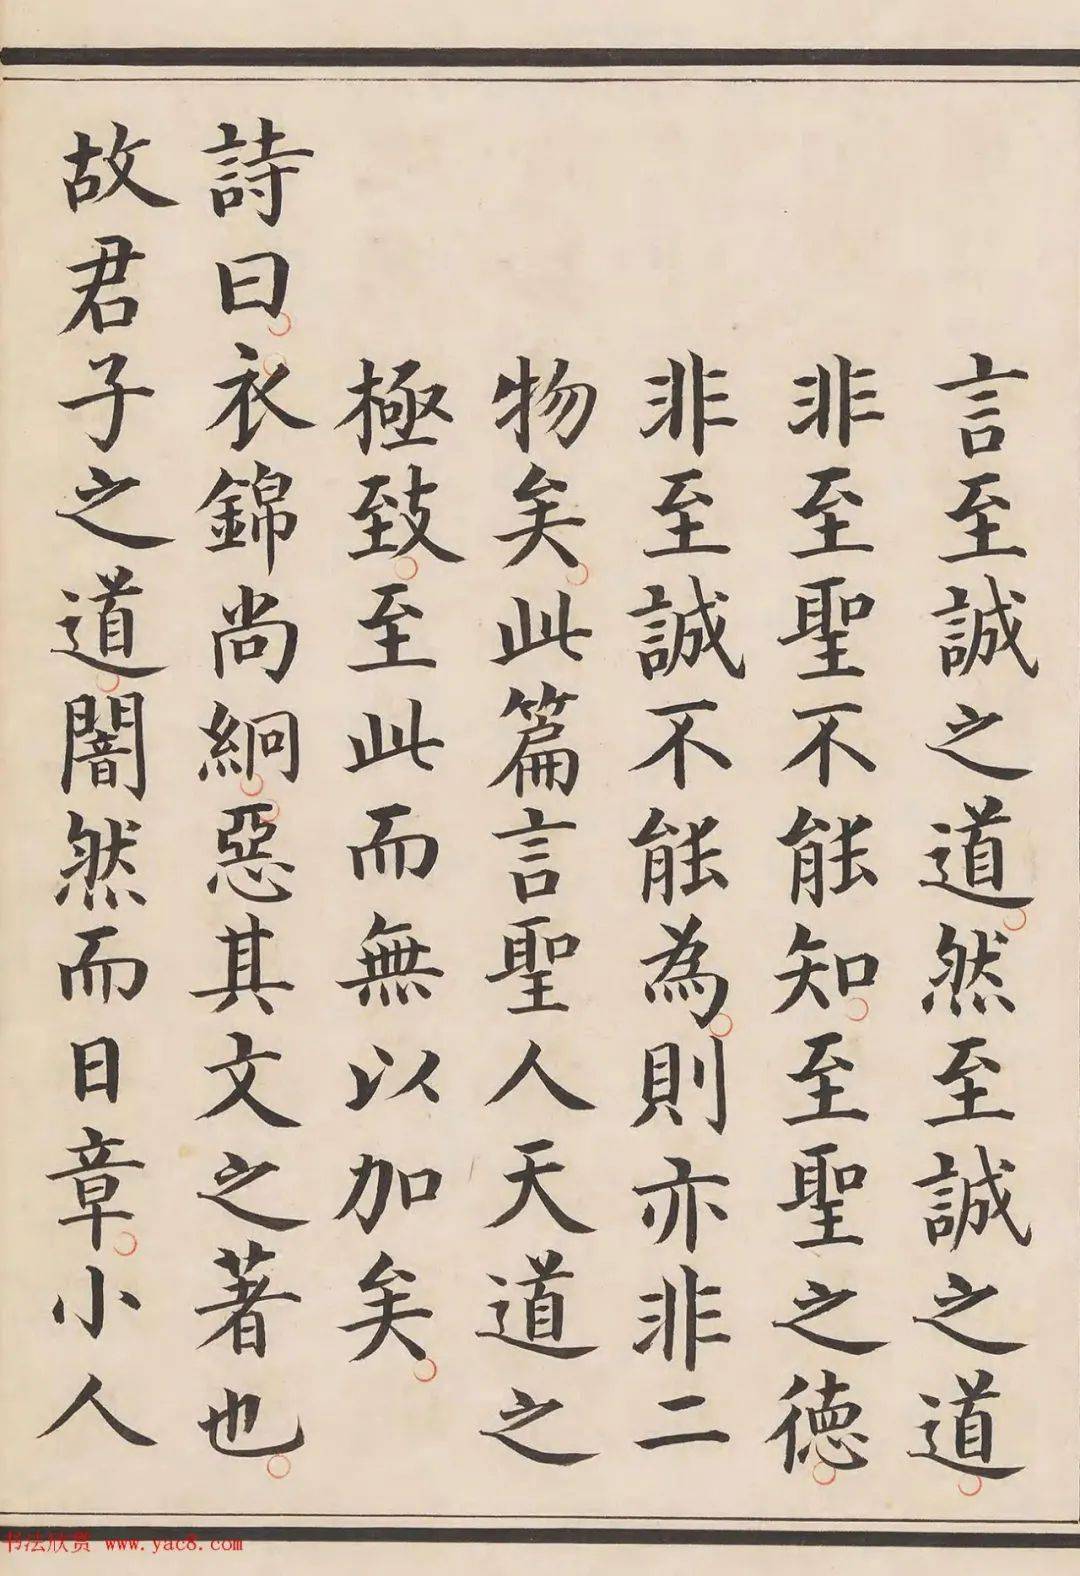 言至誠之道然至誠之道
非至聖不能知至聖之德
非至誠不能為則亦非二
物矣此篇言聖人天道之
極致至此而無以加矣
詩曰衣錦尚絅惡其文之著也
故君子之道闇然而日章小人
书法欣赏 www.yac8.com